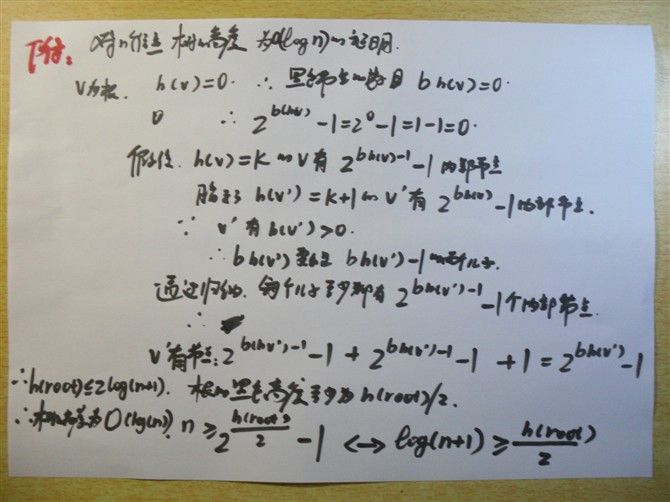 下附: 对n个节点 树的高度 为O(log n)的证明.
V为根. h(v)=0. ∴ 黑色节点的数目 bh(v)=0.
∴ 2^{bh(v)}-1=2^0-1=1-1=0.
h(v)=K的V有 2^{bh(v)-1}-1内部节点
h(v')=k+1的V'有 2^{bh(v)}-1内部节点.
∵ v'有h(v')>0.
∴ bh(v') bh(v')-1的两个儿子.
通过归纳. 每个儿子至少都有 2^{bh(v')-1}-1个内部节点
∴
V'有节点: 2^{bh(v')-1}-1 + 2^{bh(v')-1}-1 +1 = 2^{bh(v')}-1
∴h(root)≤2log(n+1). 根的黑色高度至少为 h(root)/2.
∴树高为O(lg(n)). n ≥ 2^{h(root)/2} -1 ↔ log(n+1) ≥ h(root)/2